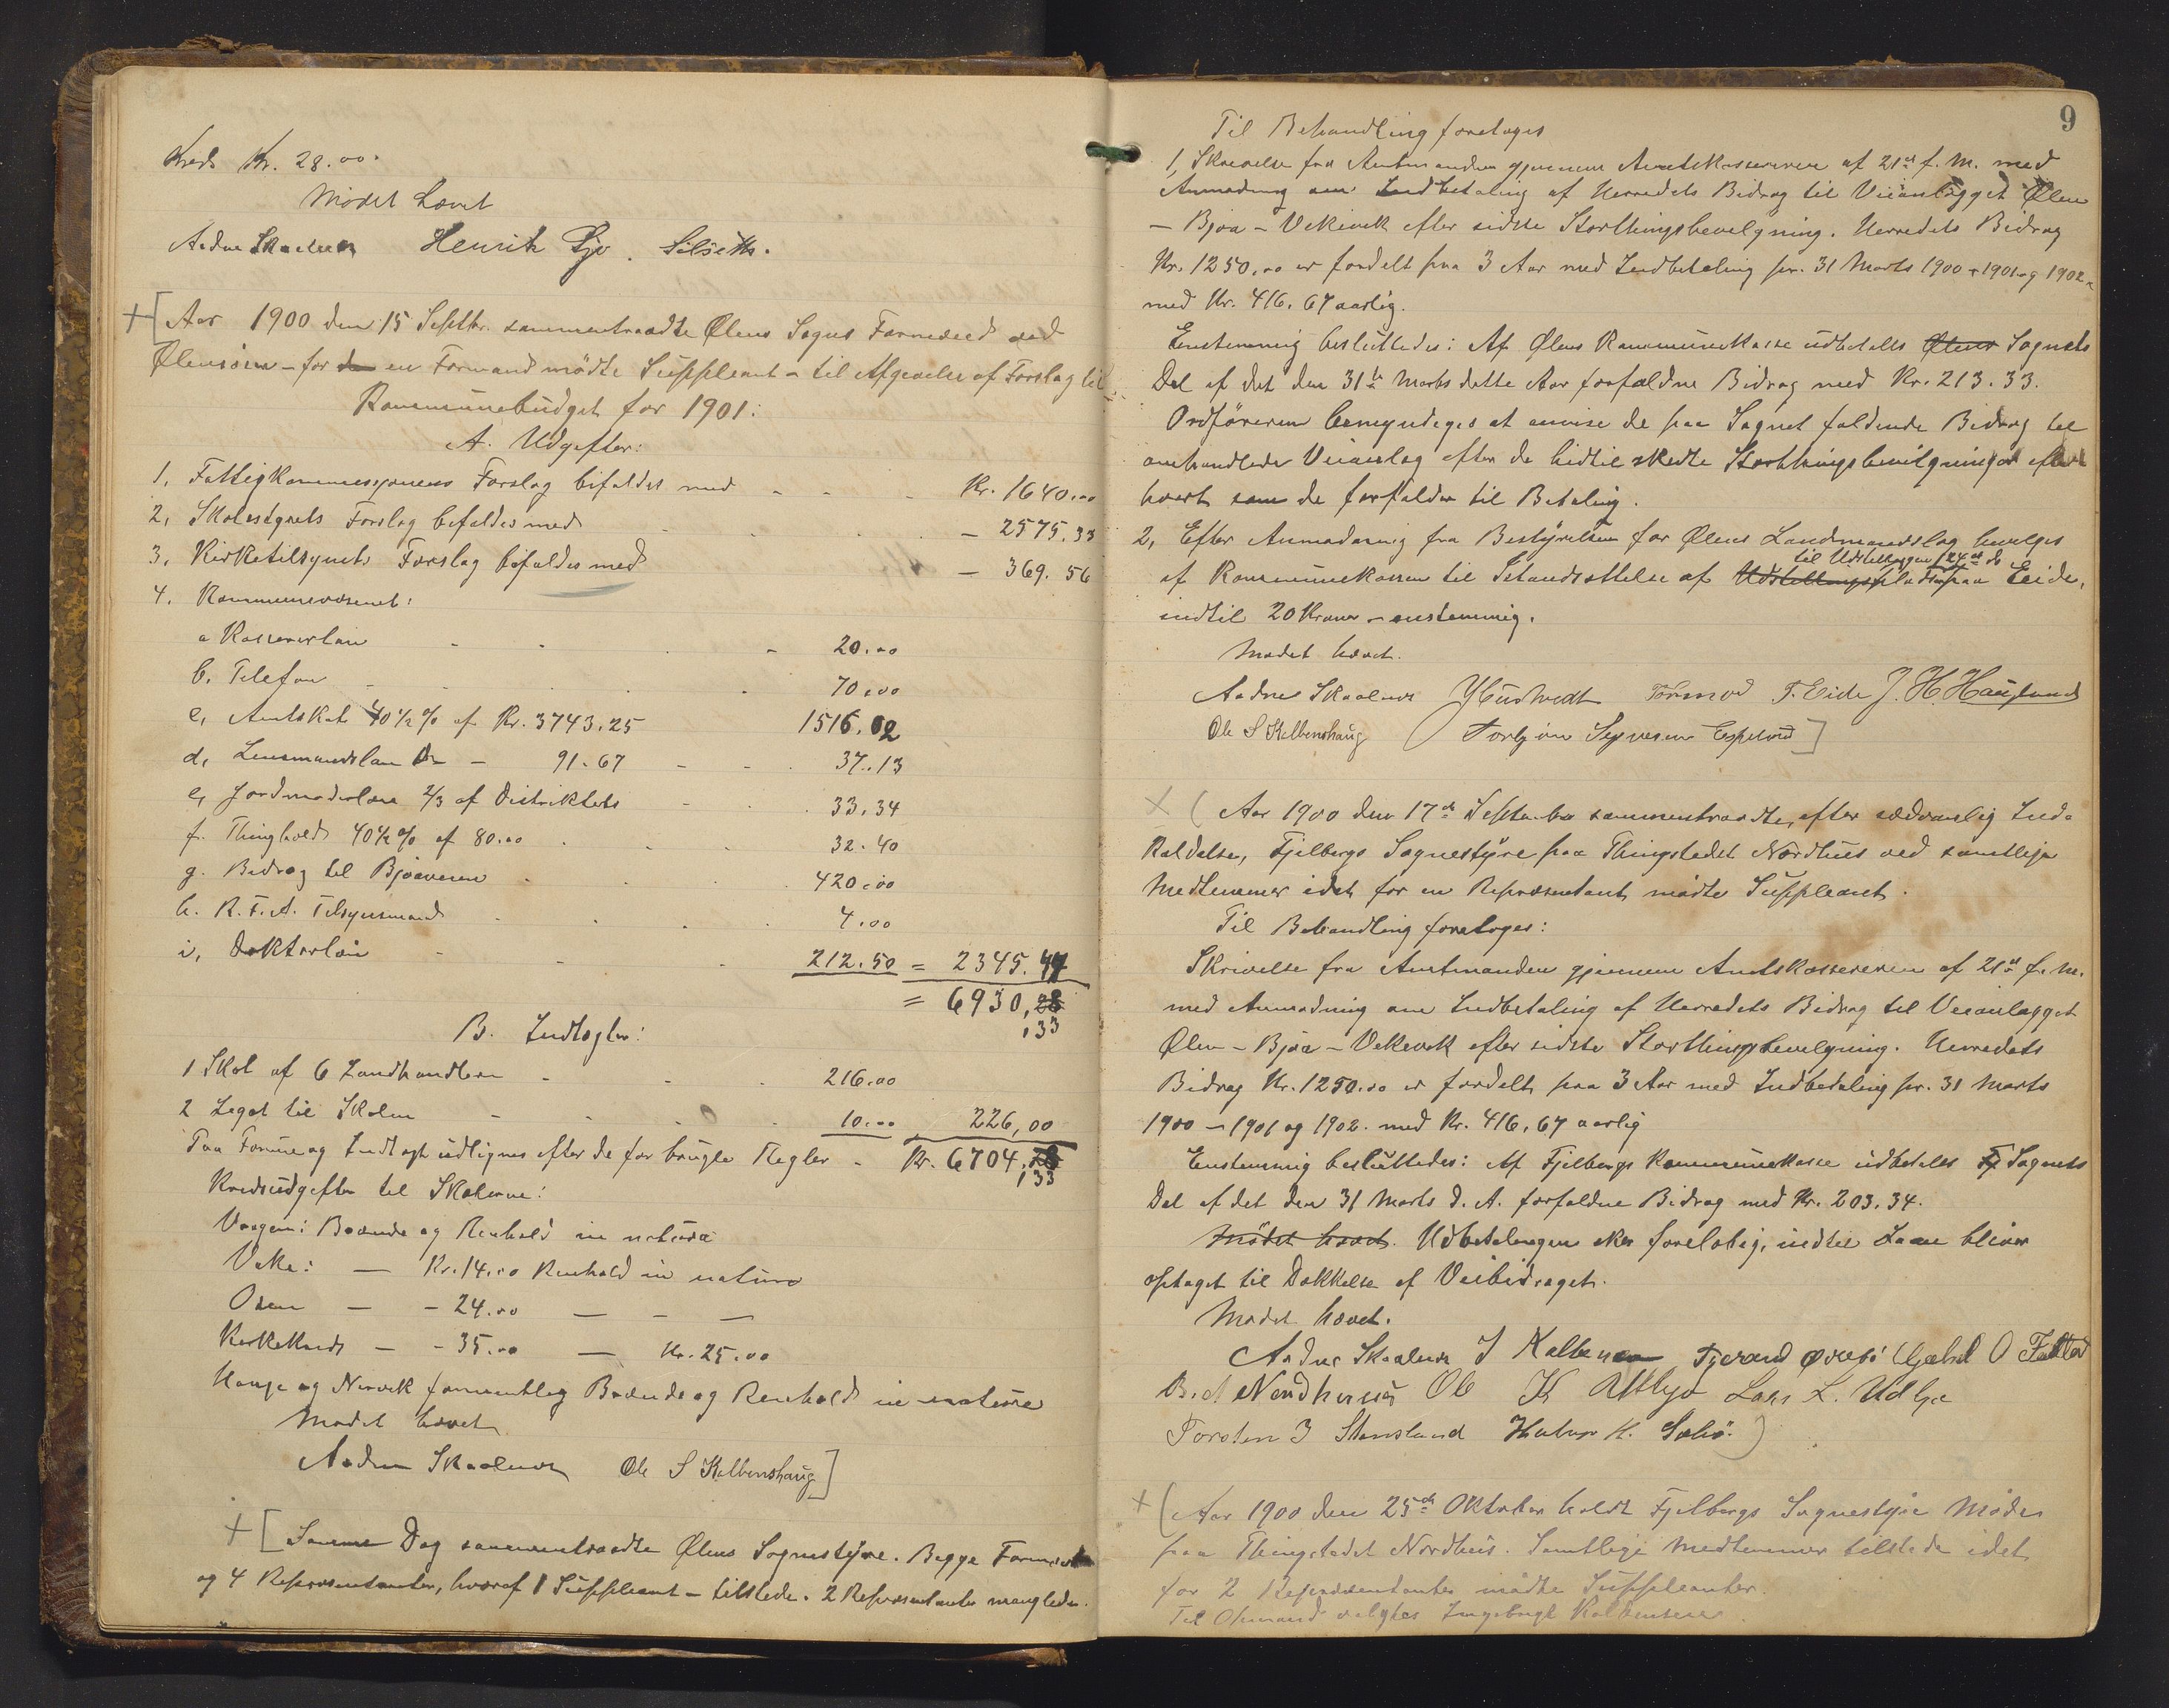 Kreds Kr. 28.00.
Mødet hævet
Aadne Skaalnes Henrik Lyo.
Aar 1900 den 15 Septbr. sammentraadte Ølens Sogns Formænd ved
Ølensøen – for den en Formand mødte Suppleant – til Afgivelse af Forslag til
Kommunebudget for 1901:
A. Udgifter:
1, Fattigkommissjonens Forslag bifaldes med - - - Kr. 1640.00
2, Skolestyrets Forslag bifaldes med - - - — 2575.33
3, Kirketilsynets Forslag bifaldes med — 369.56
4. Kommunevæsenet:
a Kassererløn - - - 20.00
b. Telefon - - - 70.00
c, Amtskat 40½ % af Kr. 3743.25 1516.02
d, Lensmandsløn Do — 91.67 - - 37.13
e, Jordmoderløn 2/3 af Distriktets - - 33.34
f. Thinghold 40½ % af 80.00 - - - 32.40
g. Bidrag til Bjoaveien - - - 420.00
h. K.F.A. Tilsynsmand - - - 4.00
i, Doktorløn - - - 212.50 = 2345.44
= 6930,28
,33
B. Indtægter:
1 Skat af 6 Landhandlere - - - 216.00
2 Legat til Skolen - - - 10.00 226,00
Paa Formue og Indtægt udlignes efter de før brugte Regler - Kr. 6704,28
,33
Kredsudgifter til Skolerne:
Vaagen: Brænde og Renhold in natura
Vake: — Kr. 14.00 Renhold in natura
Osen — - 24.00 — — —
Kirkekreds — - 35.00 — Kr. 25.00
Hauge og Nervik Brænde og Renhold in natura
Mødet hævet
Aadne Skaalnes Ole S Kalbenshaug
Samme Dag sammentraadte Ølens Sognestyre. Begge Formænd
og 4 Repræsentanter, hvoraf 1 Suppleant – tilstede. 2 Repræsentanter manglede.
9
Til Behandling foretoges
1, Skrivelse fra Amtmanden gjennem Amtskassereren af 21de f. M. med
Anmodning om Indbetaling af Herredets Bidrag til Veianlægget Ølen
– Bjoa – Vikevik efter sidste Storthingsbevilgning. Herredets Bidrag
Kr. 1250.00 er fordelt paa 3 Aar med Indbetaling pr. 31 Marts 1900 – 1901 og 1902
med Kr. 416.67 aarlig.
Enstemmig besluttedes: Af Ølens Kommunekasse udbetales Ølens Sognets
Del af det den 31te Marts dette Aar forfaldne Bidrag med Kr. 213.33.
Ordføreren bemyndiges at anvise de paa Sognet faldende Bidrag til
omhandlede Veianlæg efter de hidtil skedte Storthingsbevilgninger efter
hvert som de forfalder til Betaling.
2, Efter Anmodning fra Bestyrelsen for Ølens Landmandslag bevilges
til Udstillingen 24de ds
af Kommunekassen til Istandsættelse af Udstillingspladsen paa Eide,
indtil 20 Kroner – enstemmig.
Mødet hævet.
Aadne Skaalnes Tormod T. Eide J. H. Haugland
Ole S Kalbenshaug Torbjørn Espeland
Aar 1900 den 17de September sammentraadte, efter sædvanlig Ind-
kaldelse, Fjelbergs Sognestyre paa Thingstedet Nordhus ved samtlige
Medlemmer idet for en Repræsentant mødte Suppleant.
Til Behandling foretoges:
Skrivelse fra Amtmanden gjennem Amtskassereren af 21de f. M.
med Anmodning om Indbetaling af Herredets Bidrag til Veianlægget
Ølen – Bjoa – Vikevik efter sidste Storthingsbevilgning. Herredets
Bidrag Kr. 1250.00 er fordelt paa 3 Aar med Indbetaling pr. 31 Marts
1900 – 1901 og 1902. med Kr. 416,67 aarlig
Enstemmig besluttedes: Af Fjelbergs Kommunekasse udbetales Fj Sognets
Del af det den 31 Marts d. A. forfaldne Bidrag med Kr. 203.34.
Mødet hævet. Udbetalingen sker foreløbig, indtil Laan bliver
optaget til Dækkelse af Veibidraget.
Mødet hævet.
Aadne Skaalnes I Kalbenes Tjerand Øvrebø O Fatland
Nordhuus Ole K Lars L. Udbjo
Torsten J Stensland H. Sæbø.
Aar 1900 den 25de Oktober holdt Fjelbergs Sognestyre Møde
paa Thingstedet Nordhus. Samtlige Medlemmer tilstede idet
for 2 Repræsentanter mødte Suppleanter.
Til valgtes Ingebrigt